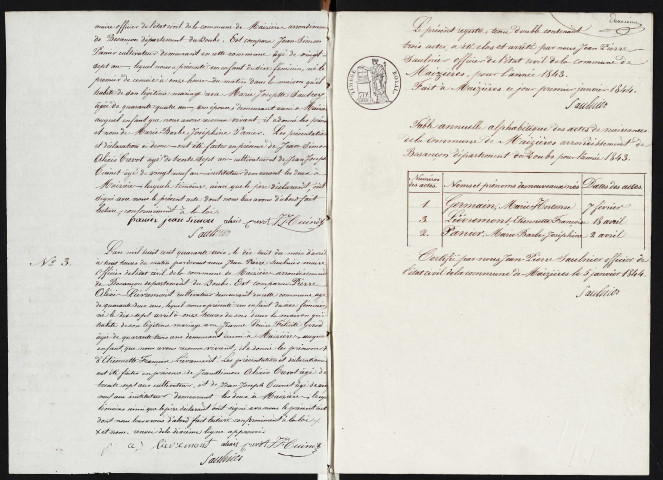 maire officier de l'état civil de la commune de Maizières, arrondissement
de Besançon département du Doubs. Est comparu Jean Simon
Panier cultivateur demeurant en cette commune âgé de vingt
sept ans, lequel nous a présenté un enfant du sexe féminin, né le
premier de ce mois à onze heures du matin dans la maison qu'il
habite de son légitime mariage avec Marie Josephte
âgée de quarante quatre ans, son épouse, demeurant aussi à Maizières
auquel enfant que nous avons reconnu vivant, il a donné les prénoms
et nom de Marie Barbe Joséphine Panier. Les présentation
et déclaration ci-dessus ont été faites en présence de Jean Simon
Alexis Cuvot âgé de trente sept ans cultivateur et de Jean Joseph
âgé de vingt neuf ans instituteur demeurant les deux à
Maizières lesquels témoins, ainsi que le père déclarant, ont
signé avec nous le présent acte dont nous leur avons d'abord fait
lecture conformément à la loi.
panier jean simon alexis cuvot
Saulnier
N° 3.
L'an mil huit cent quarante trois, le dix huit du mois d'avril
à huit heures du matin pardevant nous Jean Pierre Saulnier maire
officier de l'état civil de la commune de Maizières arrondissement
de Besançon département du Doubs. Est comparu Pierre
Alexis Lièvremont cultivateur demeurant en cette commune âgé
de quarante deux ans, lequel nous a présenté un enfant du sexe féminin
né le dix sept avril à onze heures du soir dans la maison qu'il
habite de son légitime mariage avec Jeanne Denise Félicité
âgée de quarante deux ans demeurant aussi à Maizières auquel
enfant que nous avons reconnu vivant, il a donné les prénoms et nom
d'Etiennette Françoise Lièvremont. Les présentation et déclaration
ont été faites en présence de Jean Simon Alexis Cuvot âgé de
trente sept ans cultivateur, et de Jean Joseph
ans instituteur demeurant les deux à Maizières, lesquels
témoins ainsi que le père déclarant ont signé avec nous le présent acte
dont nous leur avons d'abord fait lecture conformément à la loi.
de la dixième ligne approuvé
Lievremont alexis cuvot
Saulnier
Le présent registre, tenu double contenant
trois actes, a été clos et arrêté par nous Jean Pierre
Saulnier officier de l'état civil de la commune de
Maizières, pour l'année 1843.
Fait à Maizières ce jour premier janvier 1844.
Saulnier
TIMBRE ROYAL
Table annuelle alphabétique des actes de naissances
de la commune de Maizières arrondissement de
Besançon département du Doubs pour l'année 1843.
Numéros des actes. Noms et prénoms des nouveaux nés Dates des actes.
1 Germain, Marie Hortense 7 février
3. Lièvremont, Etiennette Françoise 18 avril
2. Panier, Marie Barbe Joséphine 2 avril
Certifié par nous Jean Pierre Saulnier officier de
l'état civil de la commune de Maizières le 5 janvier 1844.
Saulnier